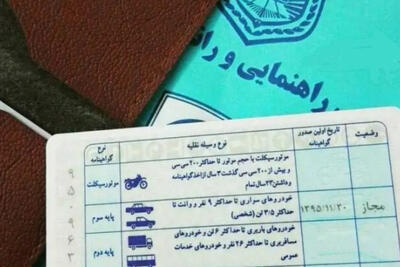 راهنمایی و ران
وضعیت
تاریخ اولین صدور گواهینامه
نوع وسیله نقلیه
نوع گواهینامه
موتورسیکلت با حجم موتور تا حداکثر ۲۰۰ سی سی
و بیش از ۲۰۰ سی سی گذشت ۳ سال از اخذ گواهینامه
و داشتن ۲۳ سال تمام
موتورسیکلت
مجاز
۱۳۹۵/۱۱/۲۰
خودروهای سواری تا حداکثر ۹ نفر و وانت تا
حداکثر ۳/۵ تن (شخصی)
پایه سوم
خودروهای باربری تا حداکثر ۶ تن و خودروهای
مسافربری تا حداکثر ۲۶ نفر و خودروهای خدمات
عمومی
پایه دوم